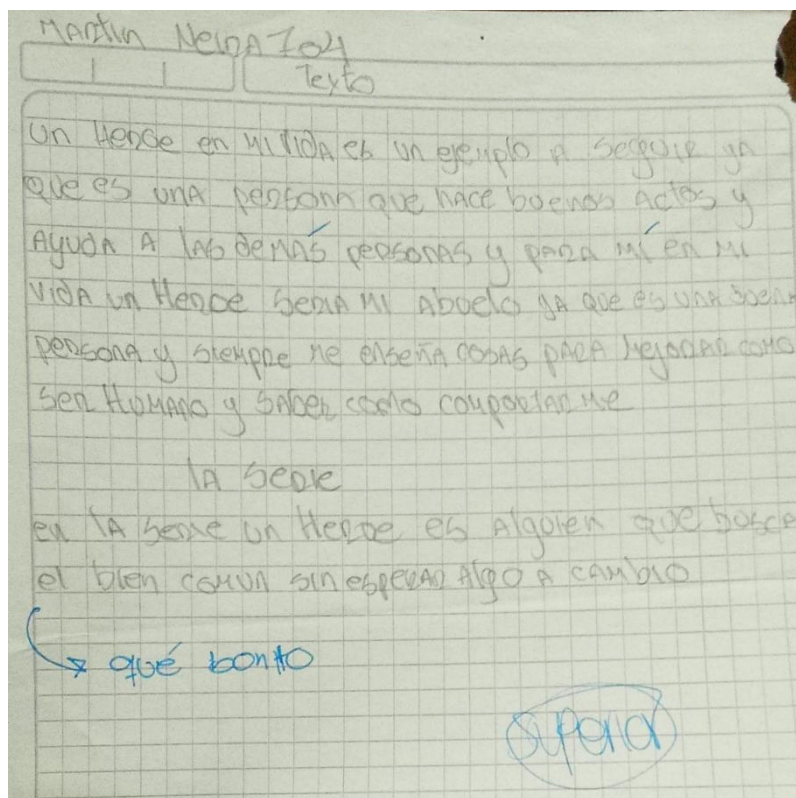 Martin Neira 704
Texto
Un Heroe en mi vida es un ejemplo a seguir ya
que es una persona que hace buenos actos y
Ayuda A las demás personas y para mí en mi
vida un Heroe seria mi Abuelo ya que es una buena
persona y siempre me enseña cosas para mejorar como
ser Humano y saber como comportarme
la serie
en la serie un Heroe es Alguien que busca
el bien comun sin esperar Algo a cambio
qué bonito
Superior